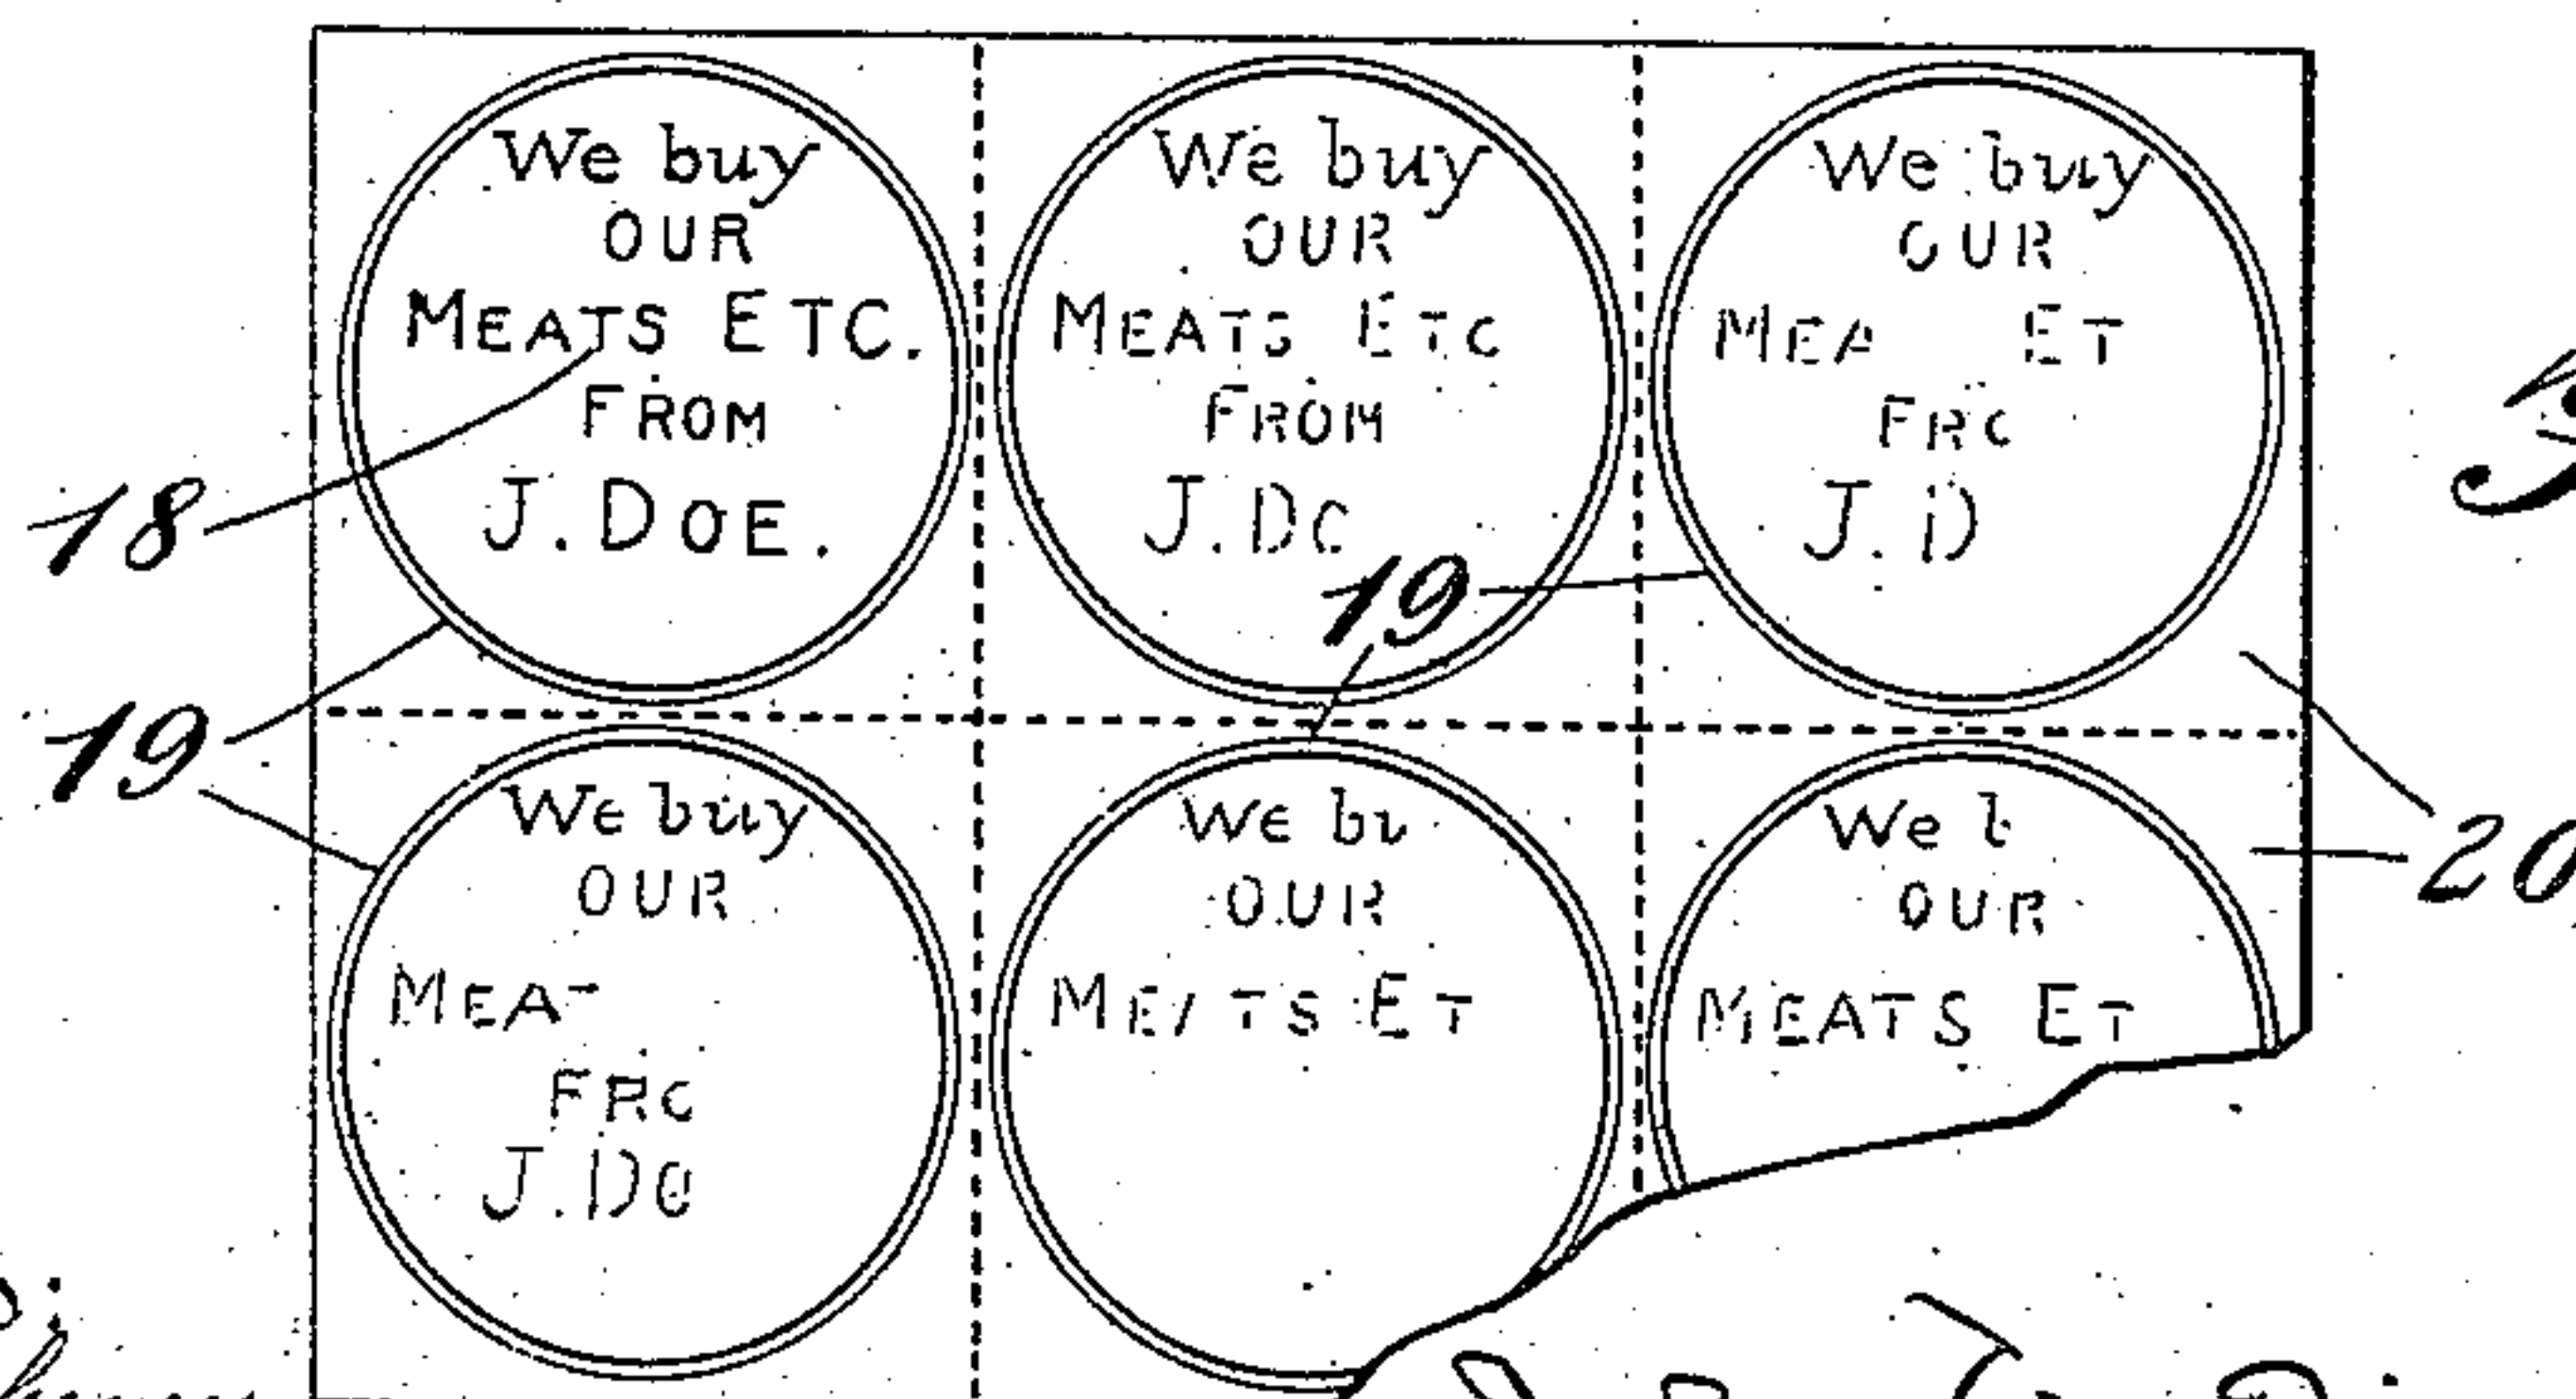 We buy
OUR
MEATS ETC.
FROM
J. DOE.
We buy
OUR
MEATS ETC
FROM
J. DO
We buy
OUR
MEA ET
FRO
J. D
18
19
19
20
We buy
OUR
MEAT
FRO
J. DO
We bu
OUR
MEATS ET
We b
OUR
MEATS ET